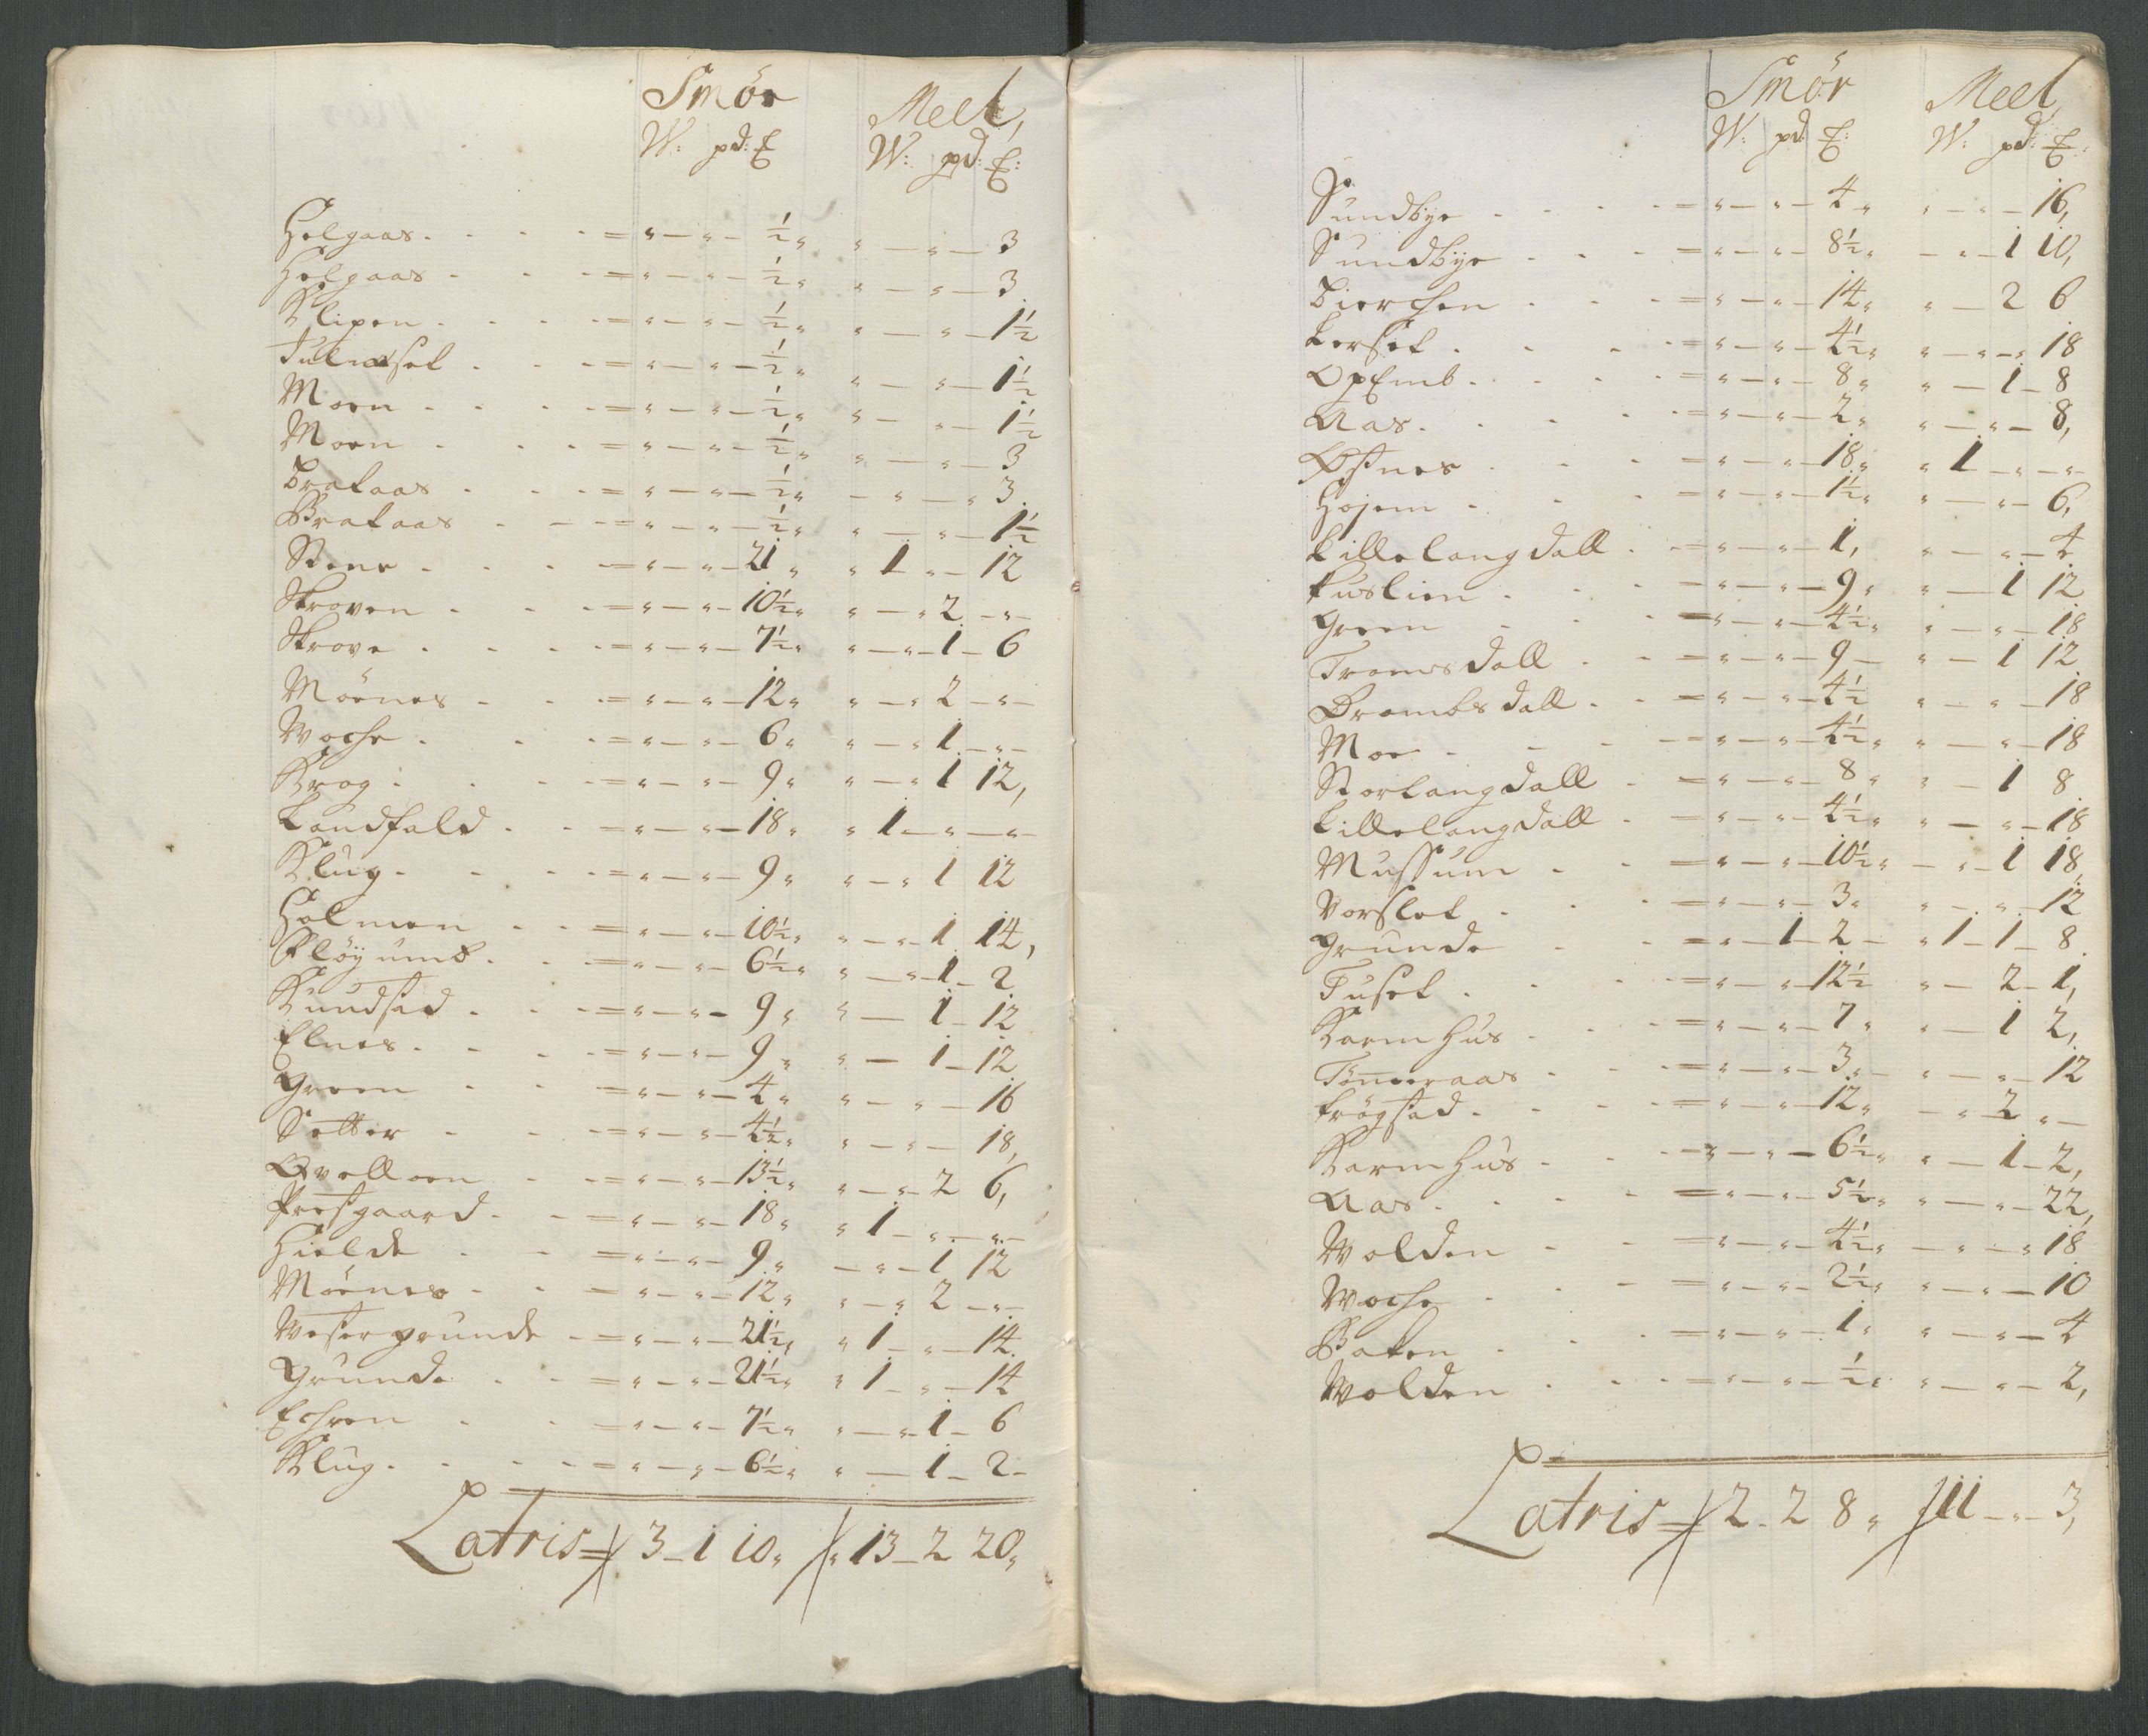 Smör Meel,
W: pd: ℔ W: pd: ℔:
Helgaas - - ½ - - 3
Helgaas - - ½ - - 3
Klipen - - ½ - - 1½
Tulnæset - - ½ - - 1½
Moen - - ½ - - 1½
Moen - - ½ - - 3
Brataas - - ½ - - 3
Brataas - - ½ - - 1½
Stene - - 21 1 - 12
Skroven - - 10½ - 2 -
Skrove - - 7½ - 1 6
Möenes - - 12 - 2 -
Woche - - 6 - 1 -
Krog - - 9 - 1 12,
Landfald - - 18 1 - -
Klug - - 9 - 1 12
Holmen - - 10½ - 1 14,
Fløÿumb - - 6½ - 1 2
Kundstad - - 9 - 1 12
Elnes - - 9 - 1 12
Green - - 4 - - 16
Setter - - 4½ - - 18,
Qvelloen - - 13½ - 2 6,
Prestgaard - - 18 1 - -
Hielde - - 9 - 1 12
Möenes - - 12 - 2 -
Westergrunde - - 21½ 1 - 14
Grunde - - 21½ 1 - 14
Echren - - 7½ - 1 6
Klug - - 6½ - 1 2
Latris 3 - 1 10 13 - 2 20
Smör Meel
W: pd: ℔: W: pd: ℔:
Sundbye - - 4 - - 16,
Sundbye - - 8½ - 1 10,
Bierchen - - 14 - 2 6
Lerset - - 4½ - - 18
Opemb - - 8 - 1 8
Aas - - 2 - - 8,
Østnes - - 18 1 - -
Hojem - - 1½ - - 6,
Lillelangdall - - 1, - - 4
Kuslien - - 9 - 1 12
Green - - 4½ - - 18
Tromsdall - - 9 - 1 12
Drombsdall - - 4½ - - 18
Moe - - 4½ - - 18
Storlangdall - - 8 - 1 8
Lillelangdall - - 4½ - - 18
Mussum - - 10½ - 1 18,
Vorslet - - 3 - - 12
Grunde - 1 2 1 1 8
Tuset - - 12½ - 2 1,
Karmhus - - 7 - 1 2,
Tömeraas - - 3 - - 12
Frögstad - - 12 - 2 -
Karmhus - - 6½ - 1 2,
Aas - - 5½ - - 22,
Wolden - - 4½ - - 18
Woche - - 2½ - - 10
Baken - - 1 - - 4
Wolden - - ½ - - 2,
Latris 2 - 2 8 11 - - 3,